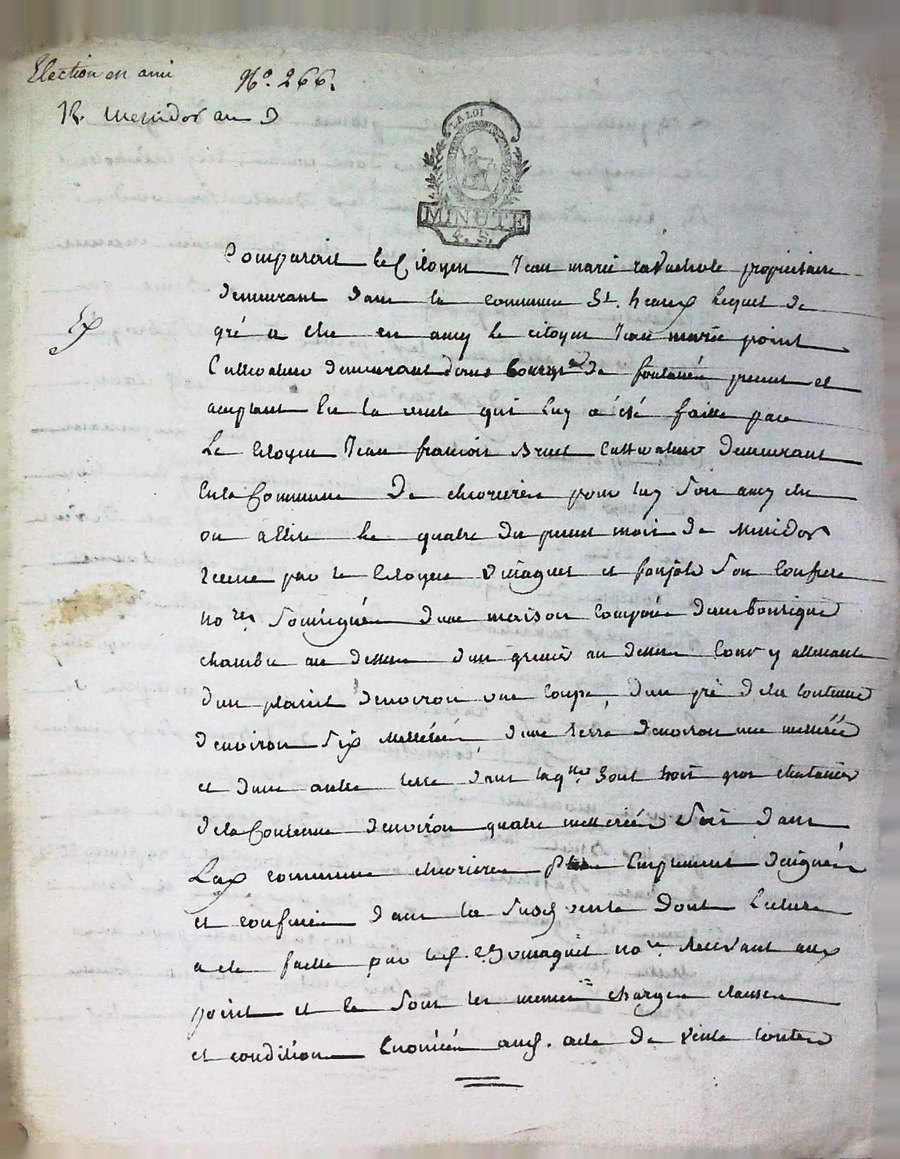 Election en ami
No. 266.
12. Messidor an 9
LA LOI
MINUTE
4. S.
Comparait le Citoyen Jean marie propriétaire
demeurant dans la commune St. heand lequel de
gré a élu en amy le citoyen Jean marie point
Cultivateur demeurant de fontanés present et
acceptant En la vente qui luy a été faitte par
Le Citoyen Jean francois Brunt Cultivateur Demeurant
En la Commune De chevrieres pour luy Son amy élu
ou a Elire Le quatre du present mois de Messidor
recue par le Citoyen et Son Confrere
nores d'une maison Composée d'une boutique
chambre au dessus d'un grenier au dessus Cour y attenante
d'un d'environ une Coupe, d'un pré de la Contenue
d'environ Six d'une terre d'environ une
et d'une autre terre dans laqlle Sont trois gros chataniers
de la Contenue d'environ quatre Sis dans
commune chevrieres Emplement designés
et confinés dans la Susd. vente Dont Lecture
a été faitte par led. nore Recevant aux
point et Ce Sous les memes charges clauses
et conditions Enoncées aud. acte De vente